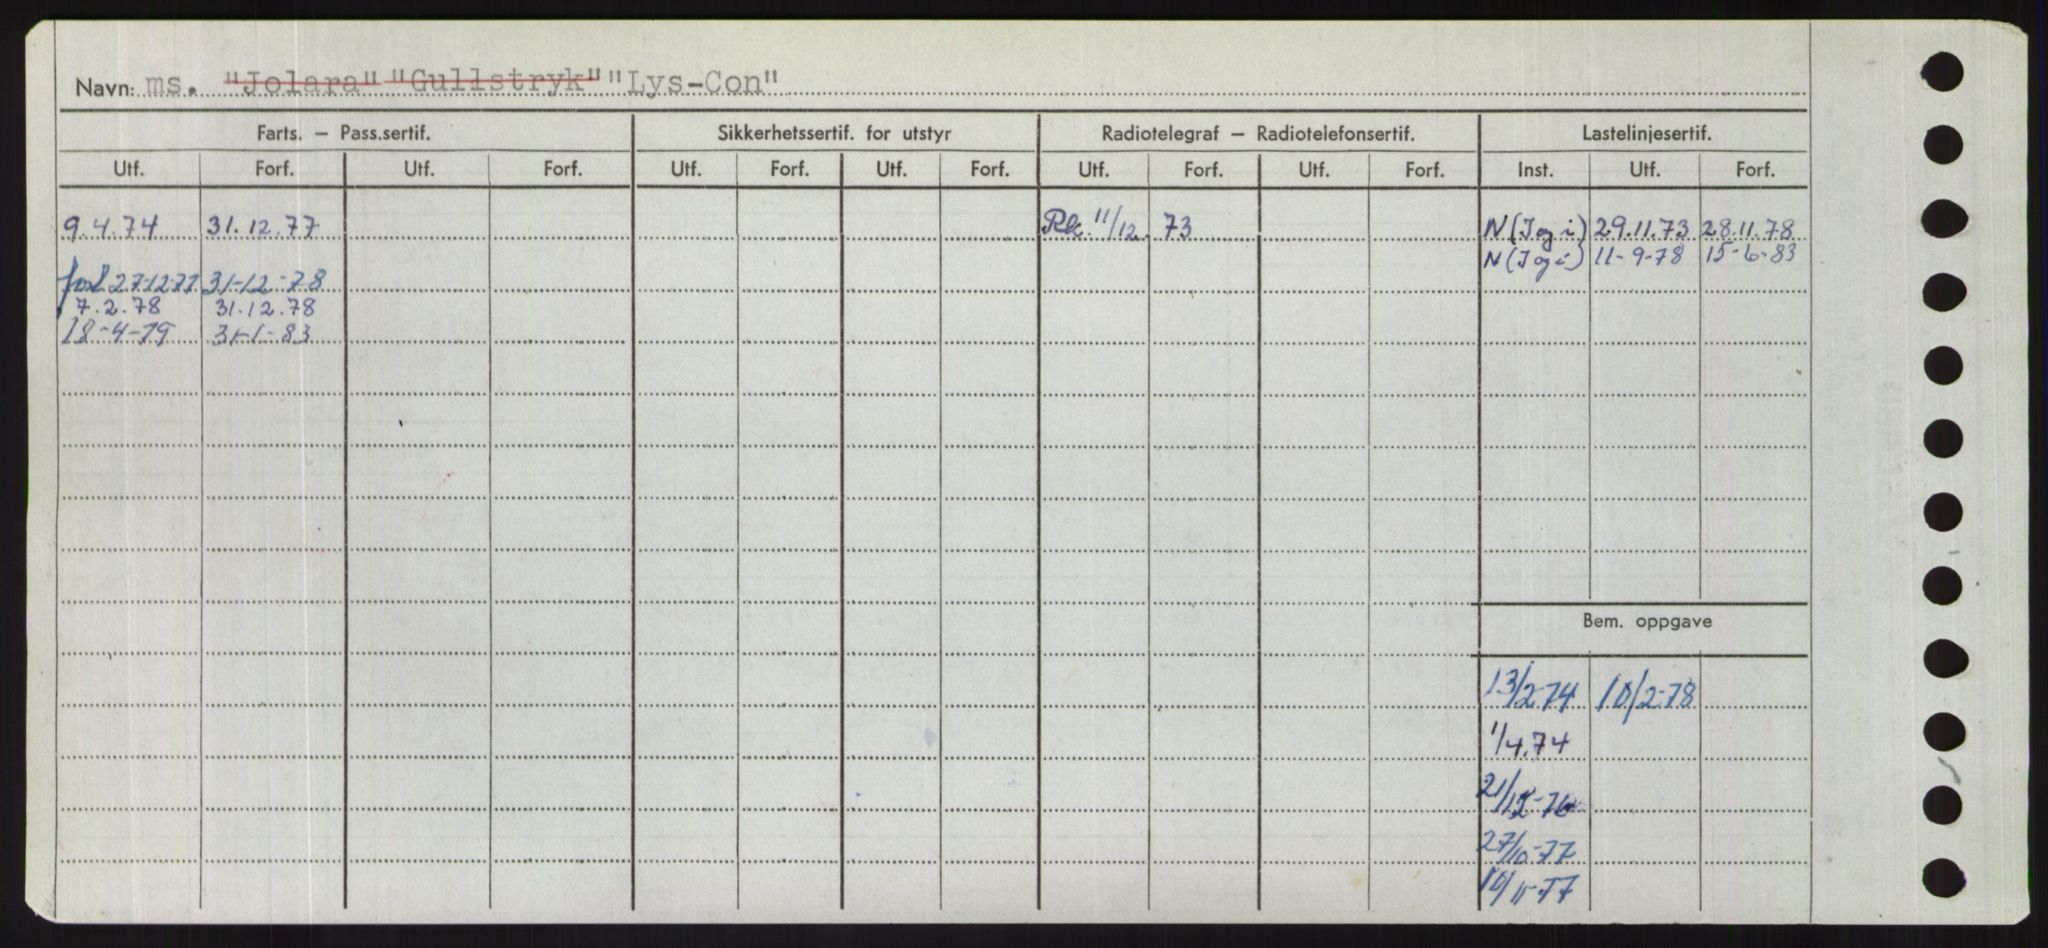 Navn: ms. "Jolara" "Gullstryk" "Lys-Con"
Farts. – Pass.sertif. Sikkerhetssertif. for utstyr Radiotelegraf – Radiotelefonsertif. Lastelinjesertif.
Utf. Forf. Utf. Forf. Utf. Forf. Utf. Forf. Utf. Forf. Utf. Forf. Inst. Utf. Forf.
9.4.74 31.12.77 11/12. 73 N (I og i) 29.11.73 28.11.78
N (I og i) 11-9-78 15-6-83
27-12-77 31-12-78
7.2.78 31.12.78
18-4-79 31-1-83
Bem. oppgave
13/2-74 10/2-78
1/4.74
21/12-76
27/10-77
10/11-77